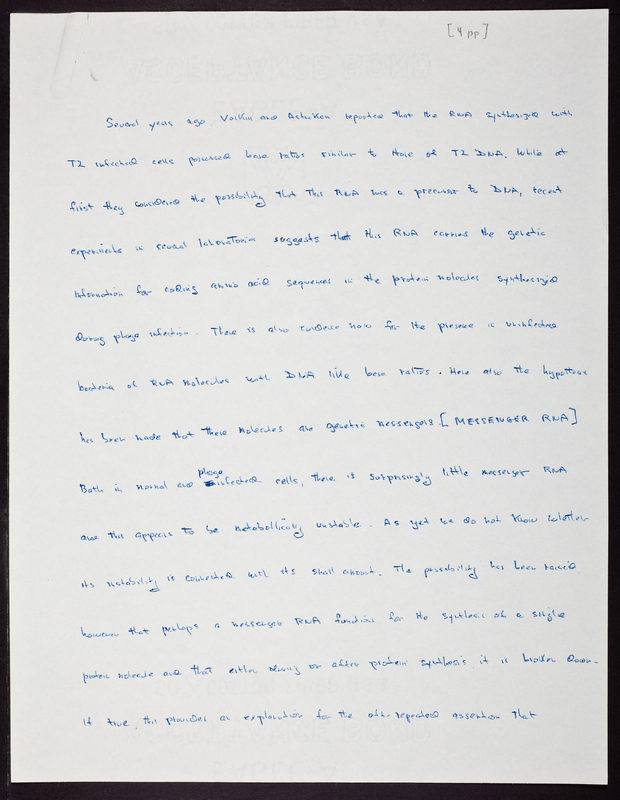 [4 pp]
Several years ago Volkin and Astrachan reported that the RNA synthesized with
T2 infected cells possessed base ratios similar to those of T2 DNA. While at
first they considered the possibility that this RNA was a precursor to DNA, recent
experiments in several laboratories suggests that this RNA carries the genetic
information for coding amino acid sequences in the protein molecules synthesized
during phage infection. There is also evidence now for the presence in uninfected
bacteria of RNA molecules with DNA like base ratios. Here also the hypothesis
has been made that these molecules are genetic messengers. [MESSENGER RNA]
Both in normal and phage infected cells, there is surprisingly little messenger RNA
and this appears to be metabollically unstable. As yet we do not know whether
its instability is connected with its small amount. The possibility has been raised
however that perhaps a messenger RNA functions for the synthesis of a single
protein molecule and that either during or after protein synthesis it is broken down.
If true, this provides an explanation for the oft-repeated assertion that